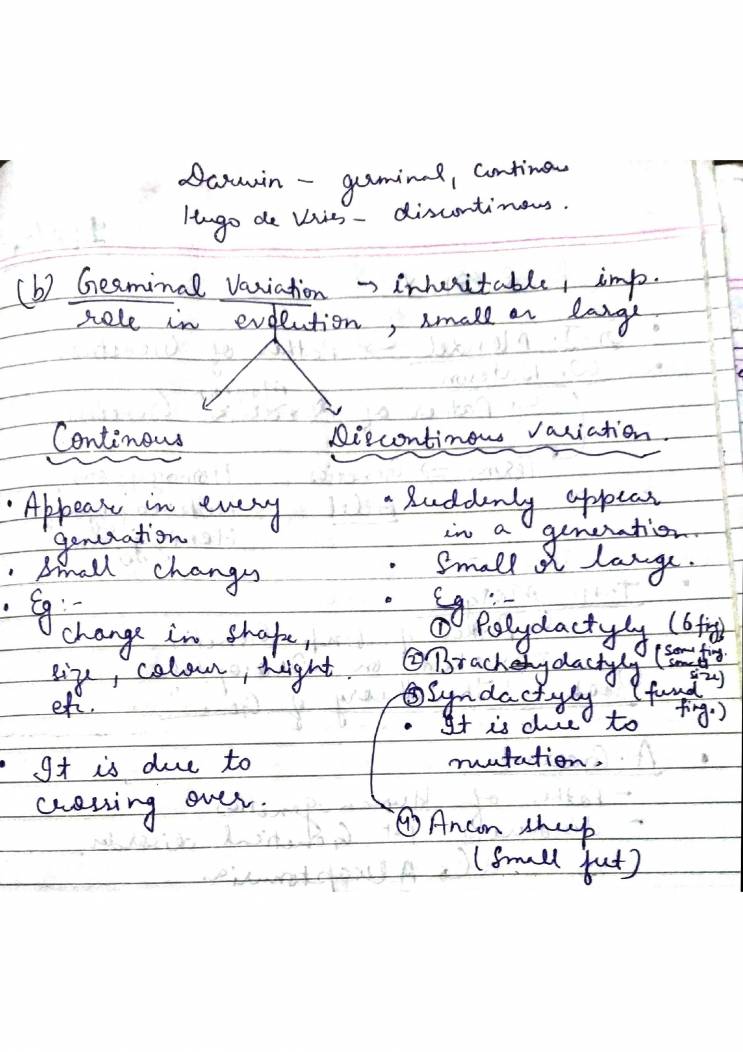 Darwin - germinal, continous
Hugo de Vries - discontinous.
(b) Germinal Variation → inheritable, imp.
role in evolution, small or large.
Continous
Discontinous variation.
• Appear in every
generation
• Small changes
• Eg :-
change in shape,
size, colour, height.
etc.
• It is due to
crossing over.
• Suddenly appear
in a generation.
• Small or large.
• Eg :-
① Polydactyly (6 fig)
② Brachydactyly (some fing.
size)
③ Syndactyly (fused
fing.)
• It is due to
mutation.
④ Ancon sheep
(Small feet)